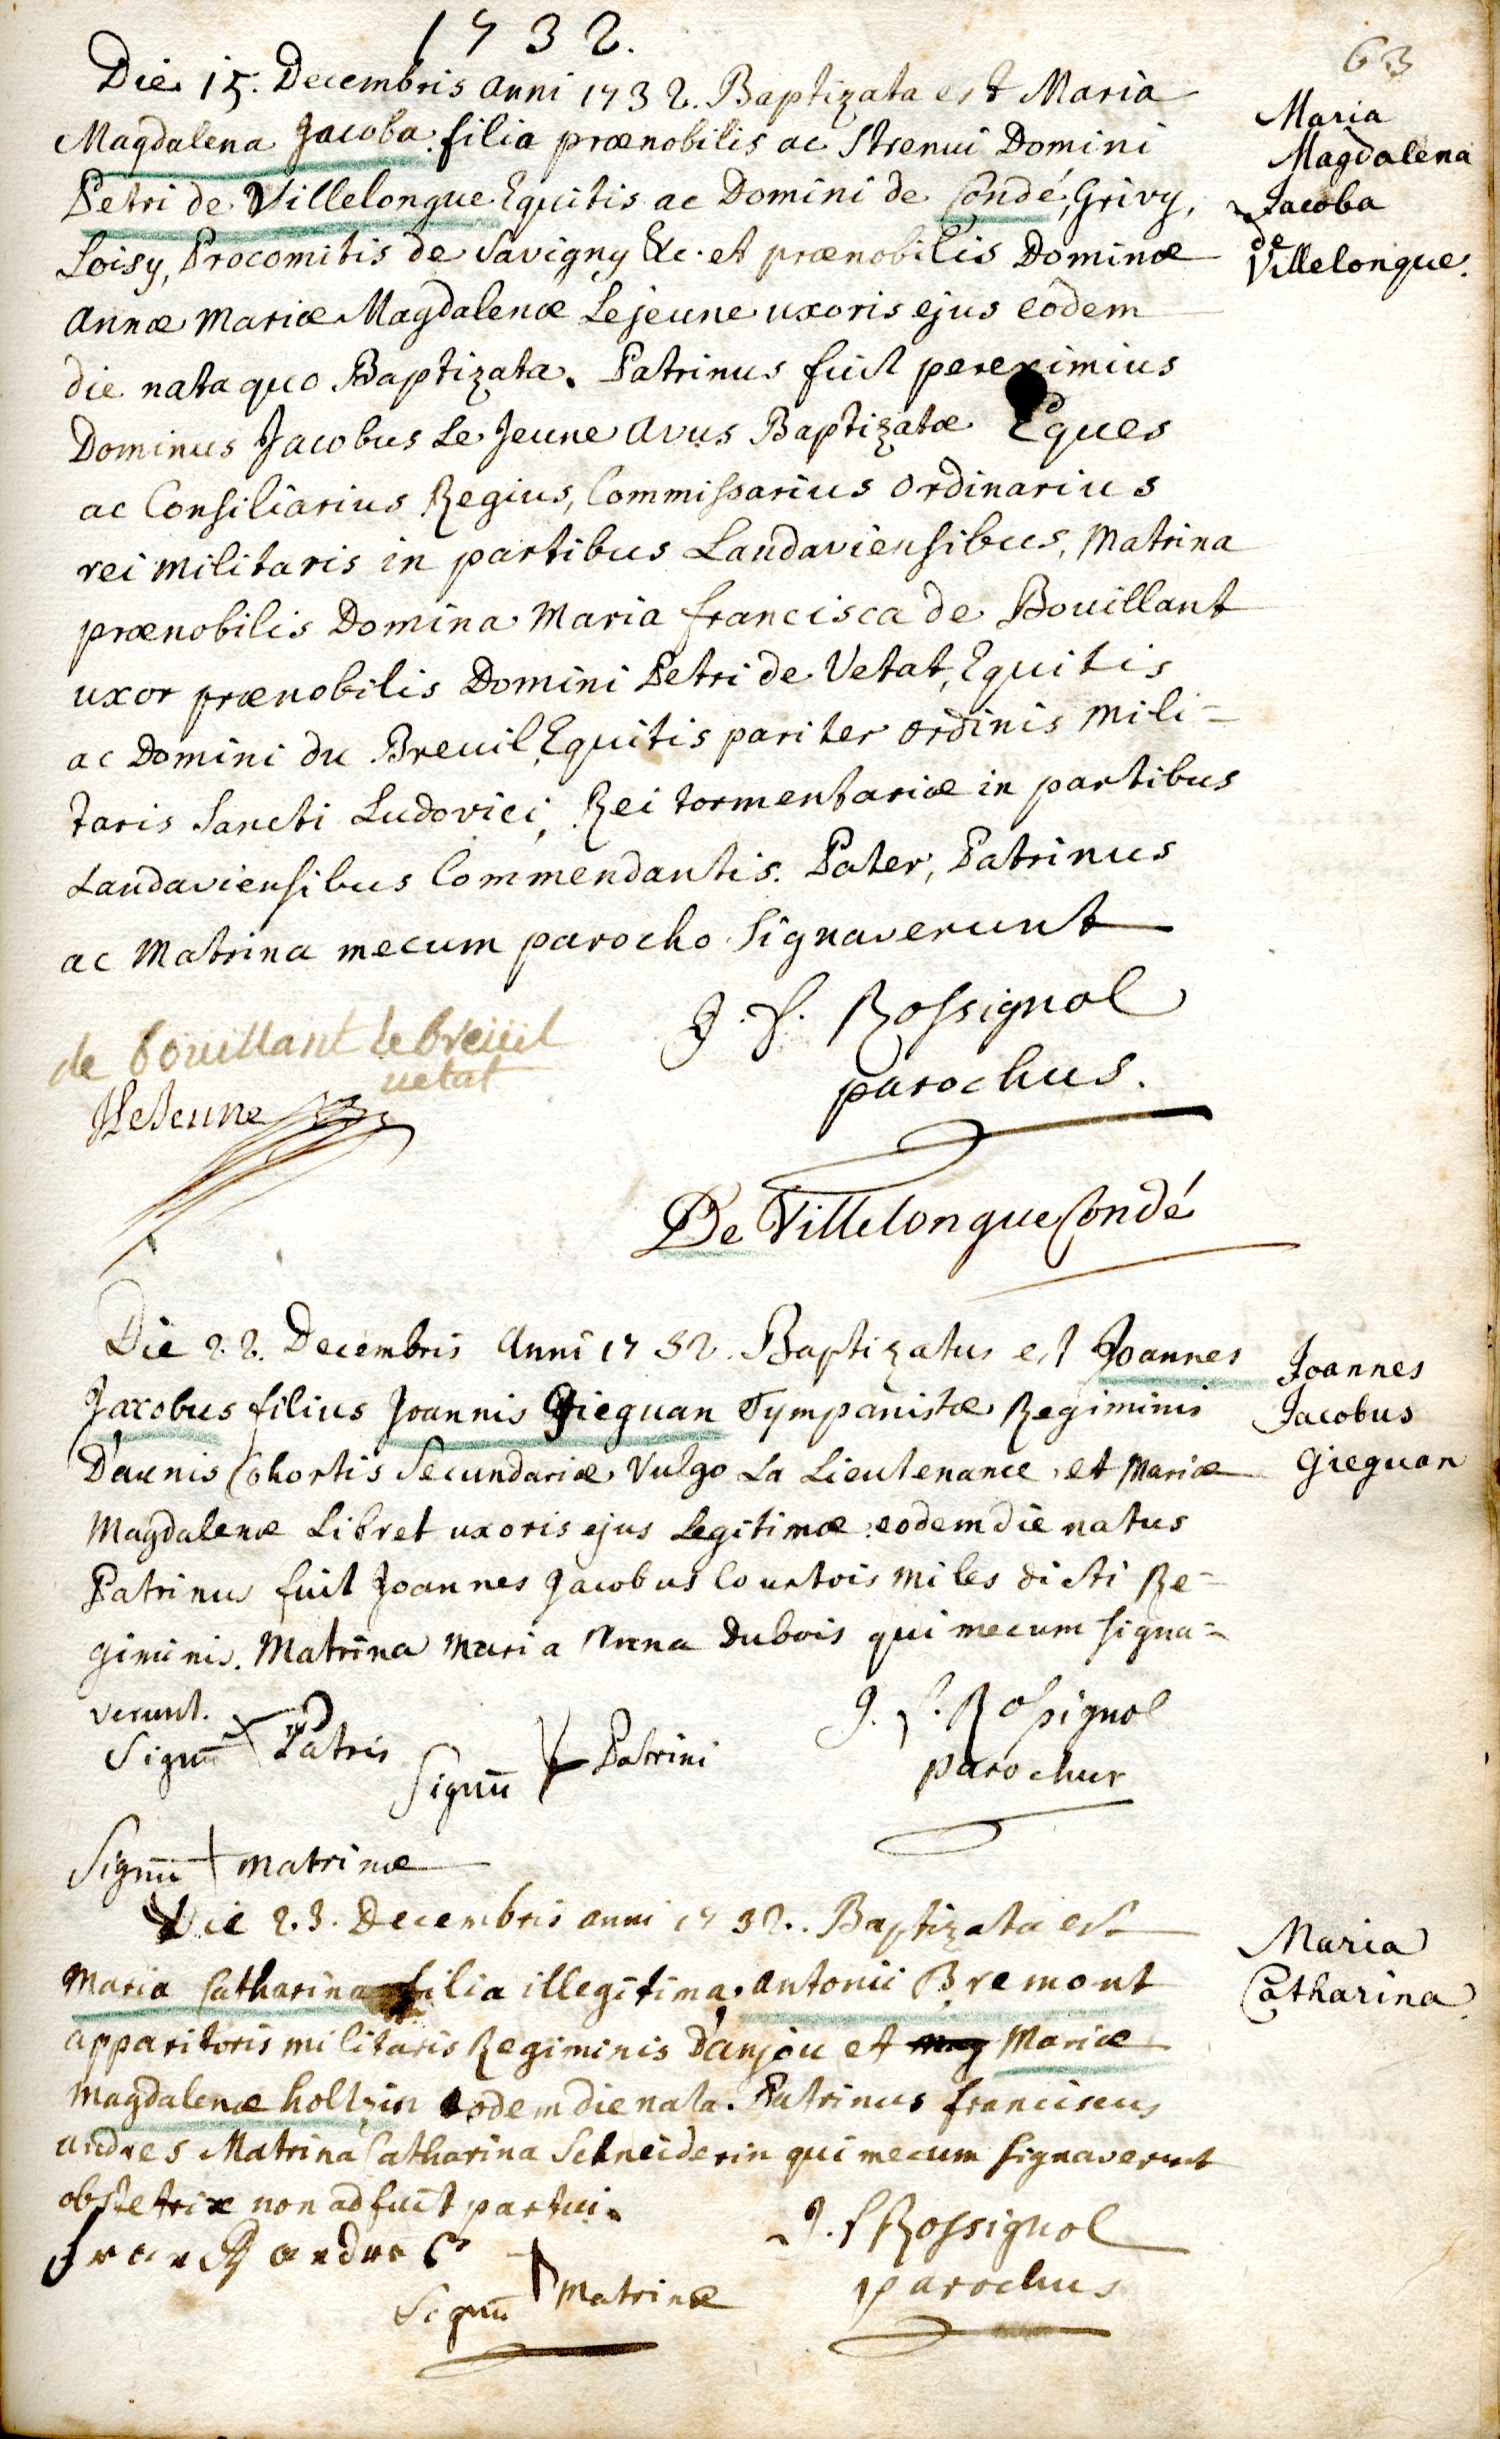 1732.
63
Die 15. Decembris anni 1732. Baptizata est Maria
Magdalena Jacoba filia prænobilis ac strenui Domini
Petri de Villelongue Equitis ac Domini de Condé, Grivy,
Loisy, Procomitis de Savigny &c. et prænobilis Dominæ
annæ Mariæ Magdalenæ Lejeune uxoris ejus eodem
die nata quo Baptizata. Patrinus fuit pereximius
Dominus Jacobus Le Jeune avus Baptizatæ Eques
ac Consiliarius Regius, Commissarius ordinarius
rei militaris in partibus Landaviensibus, Matrina
prænobilis Domina Maria francisca de Bouillant
uxor prænobilis Domini Petri de Vetat, Equitis
ac Domini du Breuil, Equitis pariter ordinis mili=
taris Sancti Ludovici, Rei tormentariæ in partibus
Landaviensibus Commendantis. Pater, Patrinus
ac Matrina mecum parocho signaverunt
Maria
Magdalena
Jacoba
de
Villelongue.
J. f. Rossignol
parochus.
de bouillant lebreüil
vetat
JLeJeune
De Villelongue Condé
Die 22. Decembris anni 1732. Baptizatus est Joannes
Jacobus filius Joannis Gieguan Tympanistæ Regiminis
D'aunis Cohortis Secundariæ vulgo La Lieutenance et Mariæ
Magdalenæ Libret uxoris ejus Legitimæ eodem die natus
Patrinus fuit Joannes Jacobus Courtois miles dicti Re=
giminis. Matrina Maria Anna Dubois qui mecum signa=
verunt.
Joannes
Jacobus
Gieguan
Signū Patris
Signū Patrini
J. f. Rossignol
parochus
Signū + matrinæ
Die 23. Decembris anni 1732. Baptizata est
Maria Catharina filia illegitima antonii Bremont
apparitoris militaris Regiminis D'anjou et Mag Mariæ
Magdalenæ holtzin eodem die nata. Patrinus franciscus
andres Matrina Catharina Schneiderin qui mecum signaverunt
obstetrix non adfuit partui.
Maria
Catharina
andres
J. f Rossignol
parochus
Signū + Matrinæ